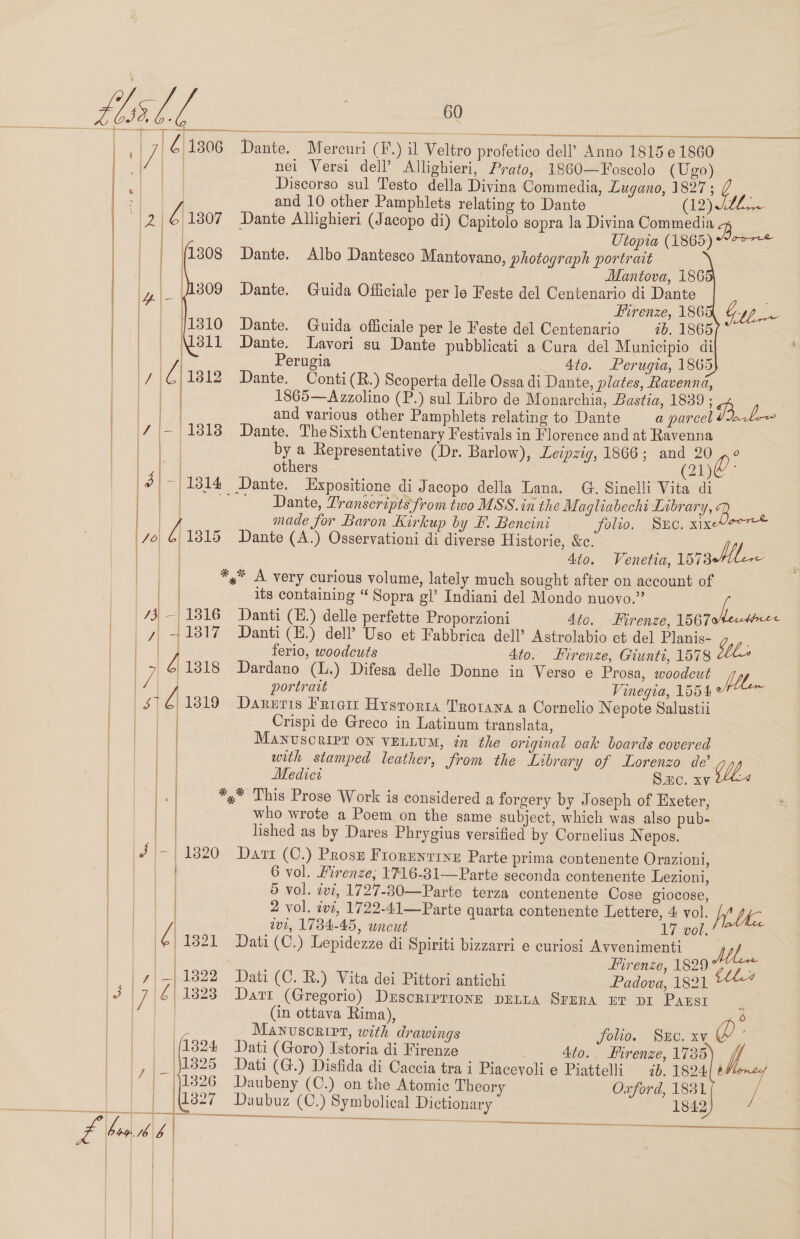 60
7 6 1306 Dante. Mercuri (F.) il Veltro profetico dell’ Anno 1815 e 1860
nei Versi dell’ Allighieri, Prato, 1860—Foscolo (Ugo)
Discorso sul Testo della Divina Commedia, Lugano, 1827;
and 10 other Pamphlets relating to Dante (12)
2 6 1307 Dante Allighieri (Jacopo di) Capitolo sopra la Divina Commedia
Utopia (1865)
1308 Dante. Albo Dantesco Mantovano, photograph portrait
Mantova, 1865
4 – 1309 Dante. Guida Officiale per le Feste del Centenario di Dante
Firenze, 1865
1310 Dante. Guida officiale per le Feste del Centenario ib. 1865
1311 Dante. Lavori su Dante pubblicati a Cura del Municipio di
Perugia 4to. Perugia, 1865
1 6 1312 Dante. Conti (R.) Scoperta delle Ossa di Dante, plates, Ravenna,
1865—Azzolino (P.) sul Libro de Monarchia, Bastia, 1839;
and various other Pamphlets relating to Dante a parcel
1 – 1313 Dante. The Sixth Centenary Festivals in Florence and at Ravenna
by a Representative (Dr. Barlow), Leipzig, 1866; and 20
others (21)
3 – 1314 Dante. Expositione di Jacopo della Lana. G. Sinelli Vita di
Dante, Transcripts from two MSS. in the Magliabechi Library,
made for Baron Kirkup by F. Bencini folio. Sec. xix
10 6 1315 Dante (A.) Osservationi di diverse Historie, &c.
4to. Venetia, 1573 Allen
*** A very curious volume, lately much sought after on account of
its containing “Sopra gl’ Indiani del Mondo nuovo.”
13 – 1316 Danti (E.) delle perfette Proporzioni 4to. Firenze, 1567
1 – 1317 Danti (E.) dell’ Uso et Fabbrica dell’ Astrolabio et del Planis-
ferio, woodcuts 4to. Firenze, Giunti, 1578
7 6 1318 Dardano (L.) Difesa delle Donne in Verso e Prosa, woodcut
portrait Vinegia, 1554 Allen
5 7 6 1319 Daretis Frigii Hystoria Troiana a Cornelio Nepote Salustii
Crispi de Greco in Latinum translata,
Manuscript on vellum, in the original oak boards covered
with stamped leather, from the Library of Lorenzo de’
Medici Sæc. xv
*** This Prose Work is considered a forgery by Joseph of Exeter,
who wrote a Poem on the same subject, which was also pub-
lished as by Dares Phrygius versified by Cornelius Nepos.
– 1320 Dati (C.) Prose Fiorentine Parte prima contenente Orazioni,
6 vol. Firenze, 1716-31—Parte seconda contenente Lezioni,
5 vol. ivi, 1727-30—Parte terza contenente Cose giocose,
2 vol. ivi, 1722-41—Parte quarta contenente Lettere, 4 vol.
ivi, 1734-45, uncut 17 vol.
6 1321 Dati (C.) Lepidezze di Spiriti bizzarri e curiosi Avvenimenti
Firenze, 1829 Allen
1 – 1322 Dati (C. R.) Vita dei Pittori antichi Padova, 1821
3 7 6 1323 Dati (Gregorio) Descriptione della Sfera et di Paesi
(in ottava Rima),
Manuscript, with drawings folio. Sec. xv
1324 Dati (Goro) Istoria di Firenze 4to. Firenze, 1735
1 – 1325 Dati (G.) Disfida di Caccia tra i Piacevoli e Piattelli ib. 1824 Money
1326 Daubeny (C.) on the Atomic Theory Oxford, 1831
1327 Daubuz (C.) Symbolical Dictionary 1842